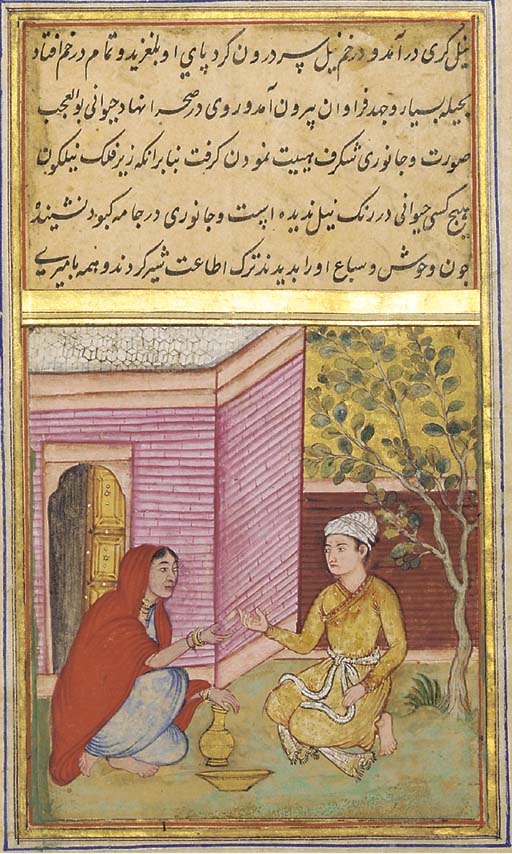 نیل کری درآمد و در خم نیل سر درون کرد پای او بلغزید و تمام در خم افتاد
بحیله بسیار و جهد فراوان بیرون آمد و روی در صحرا نهاد حیوانی بوالعجب
صورت و جانوری شکرف هیبت نمودن کرفت بنا برانکه زیر فلک نیلکون
هیچ کسی حیوانی در رنک نیل ندیده است و جانوری در جامه کبود نشنیده
چون وحوش و سباع او را بدیدند ترک اطاعت شیر کردند و همه بامیری